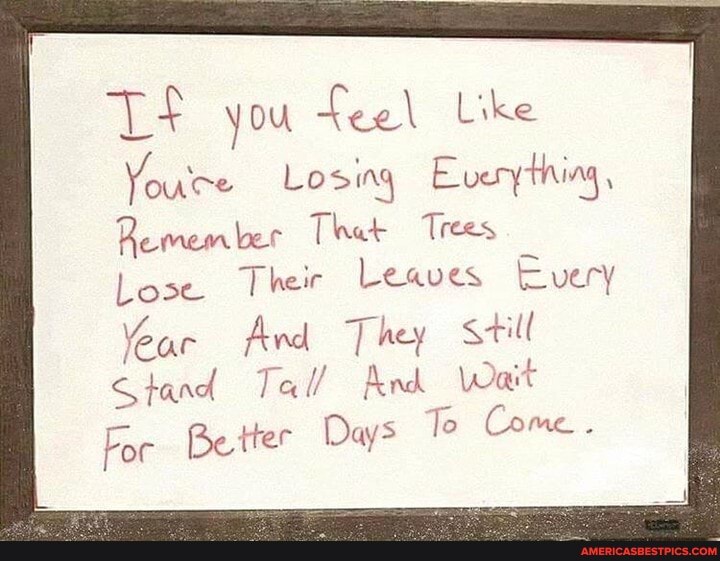 If you feel Like
You're Losing Everything,
Remember That Trees
Lose Their Leaves Every
Year And They Still
Stand Tall And Wait
For Better Days To Come.
AMERICASBESTPICS.COM